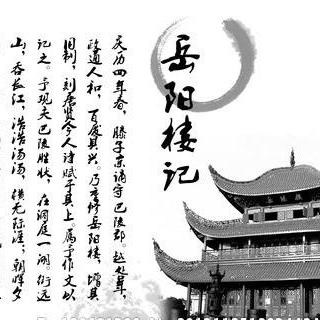 岳阳楼记
庆历四年春，滕子京谪守巴陵郡。越明年，
政通人和，百废具兴。乃重修岳阳楼，增其
旧制，刻唐贤今人诗赋于其上。属予作文以
记之。予观夫巴陵胜状，在洞庭一湖。衔远
山，吞长江，浩浩汤汤，横无际涯，朝晖夕